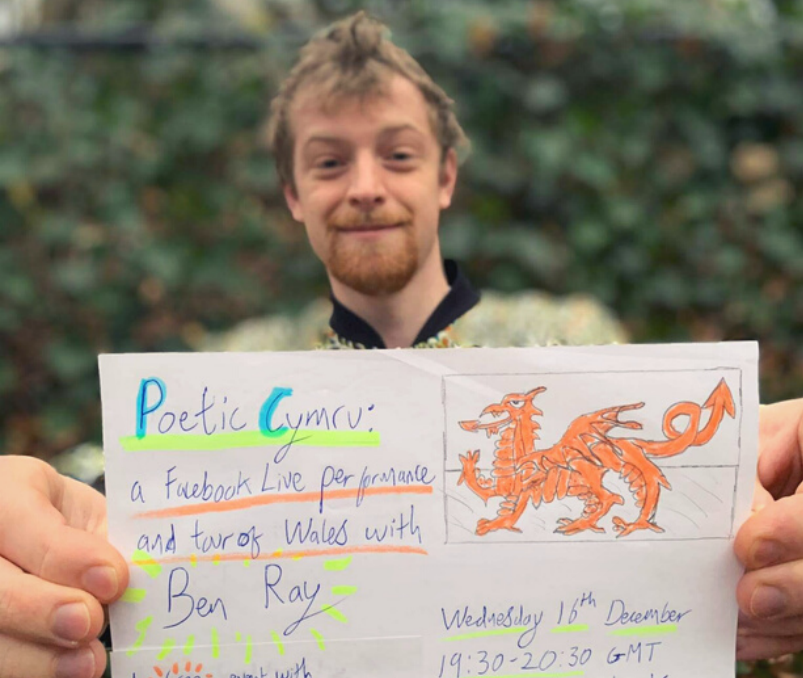 Poetic Cymru:
a Facebook Live performance
and tour of Wales with
Ben Ray
event with
Wednesday 16th December
19:30-20:30 GMT